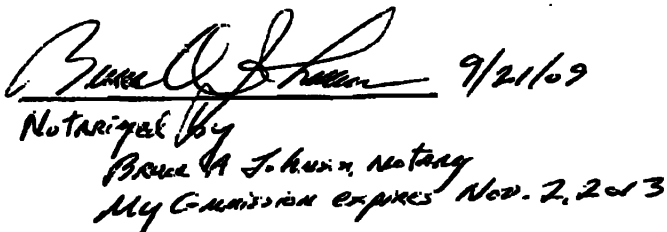 Bruce A Johnson 9/21/09
Notarized by
Bruce A Johnson, Notary
My Commission expires Nov. 2, 2013